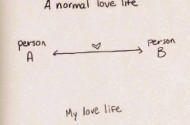 A normal love life
person person
A B
My love life